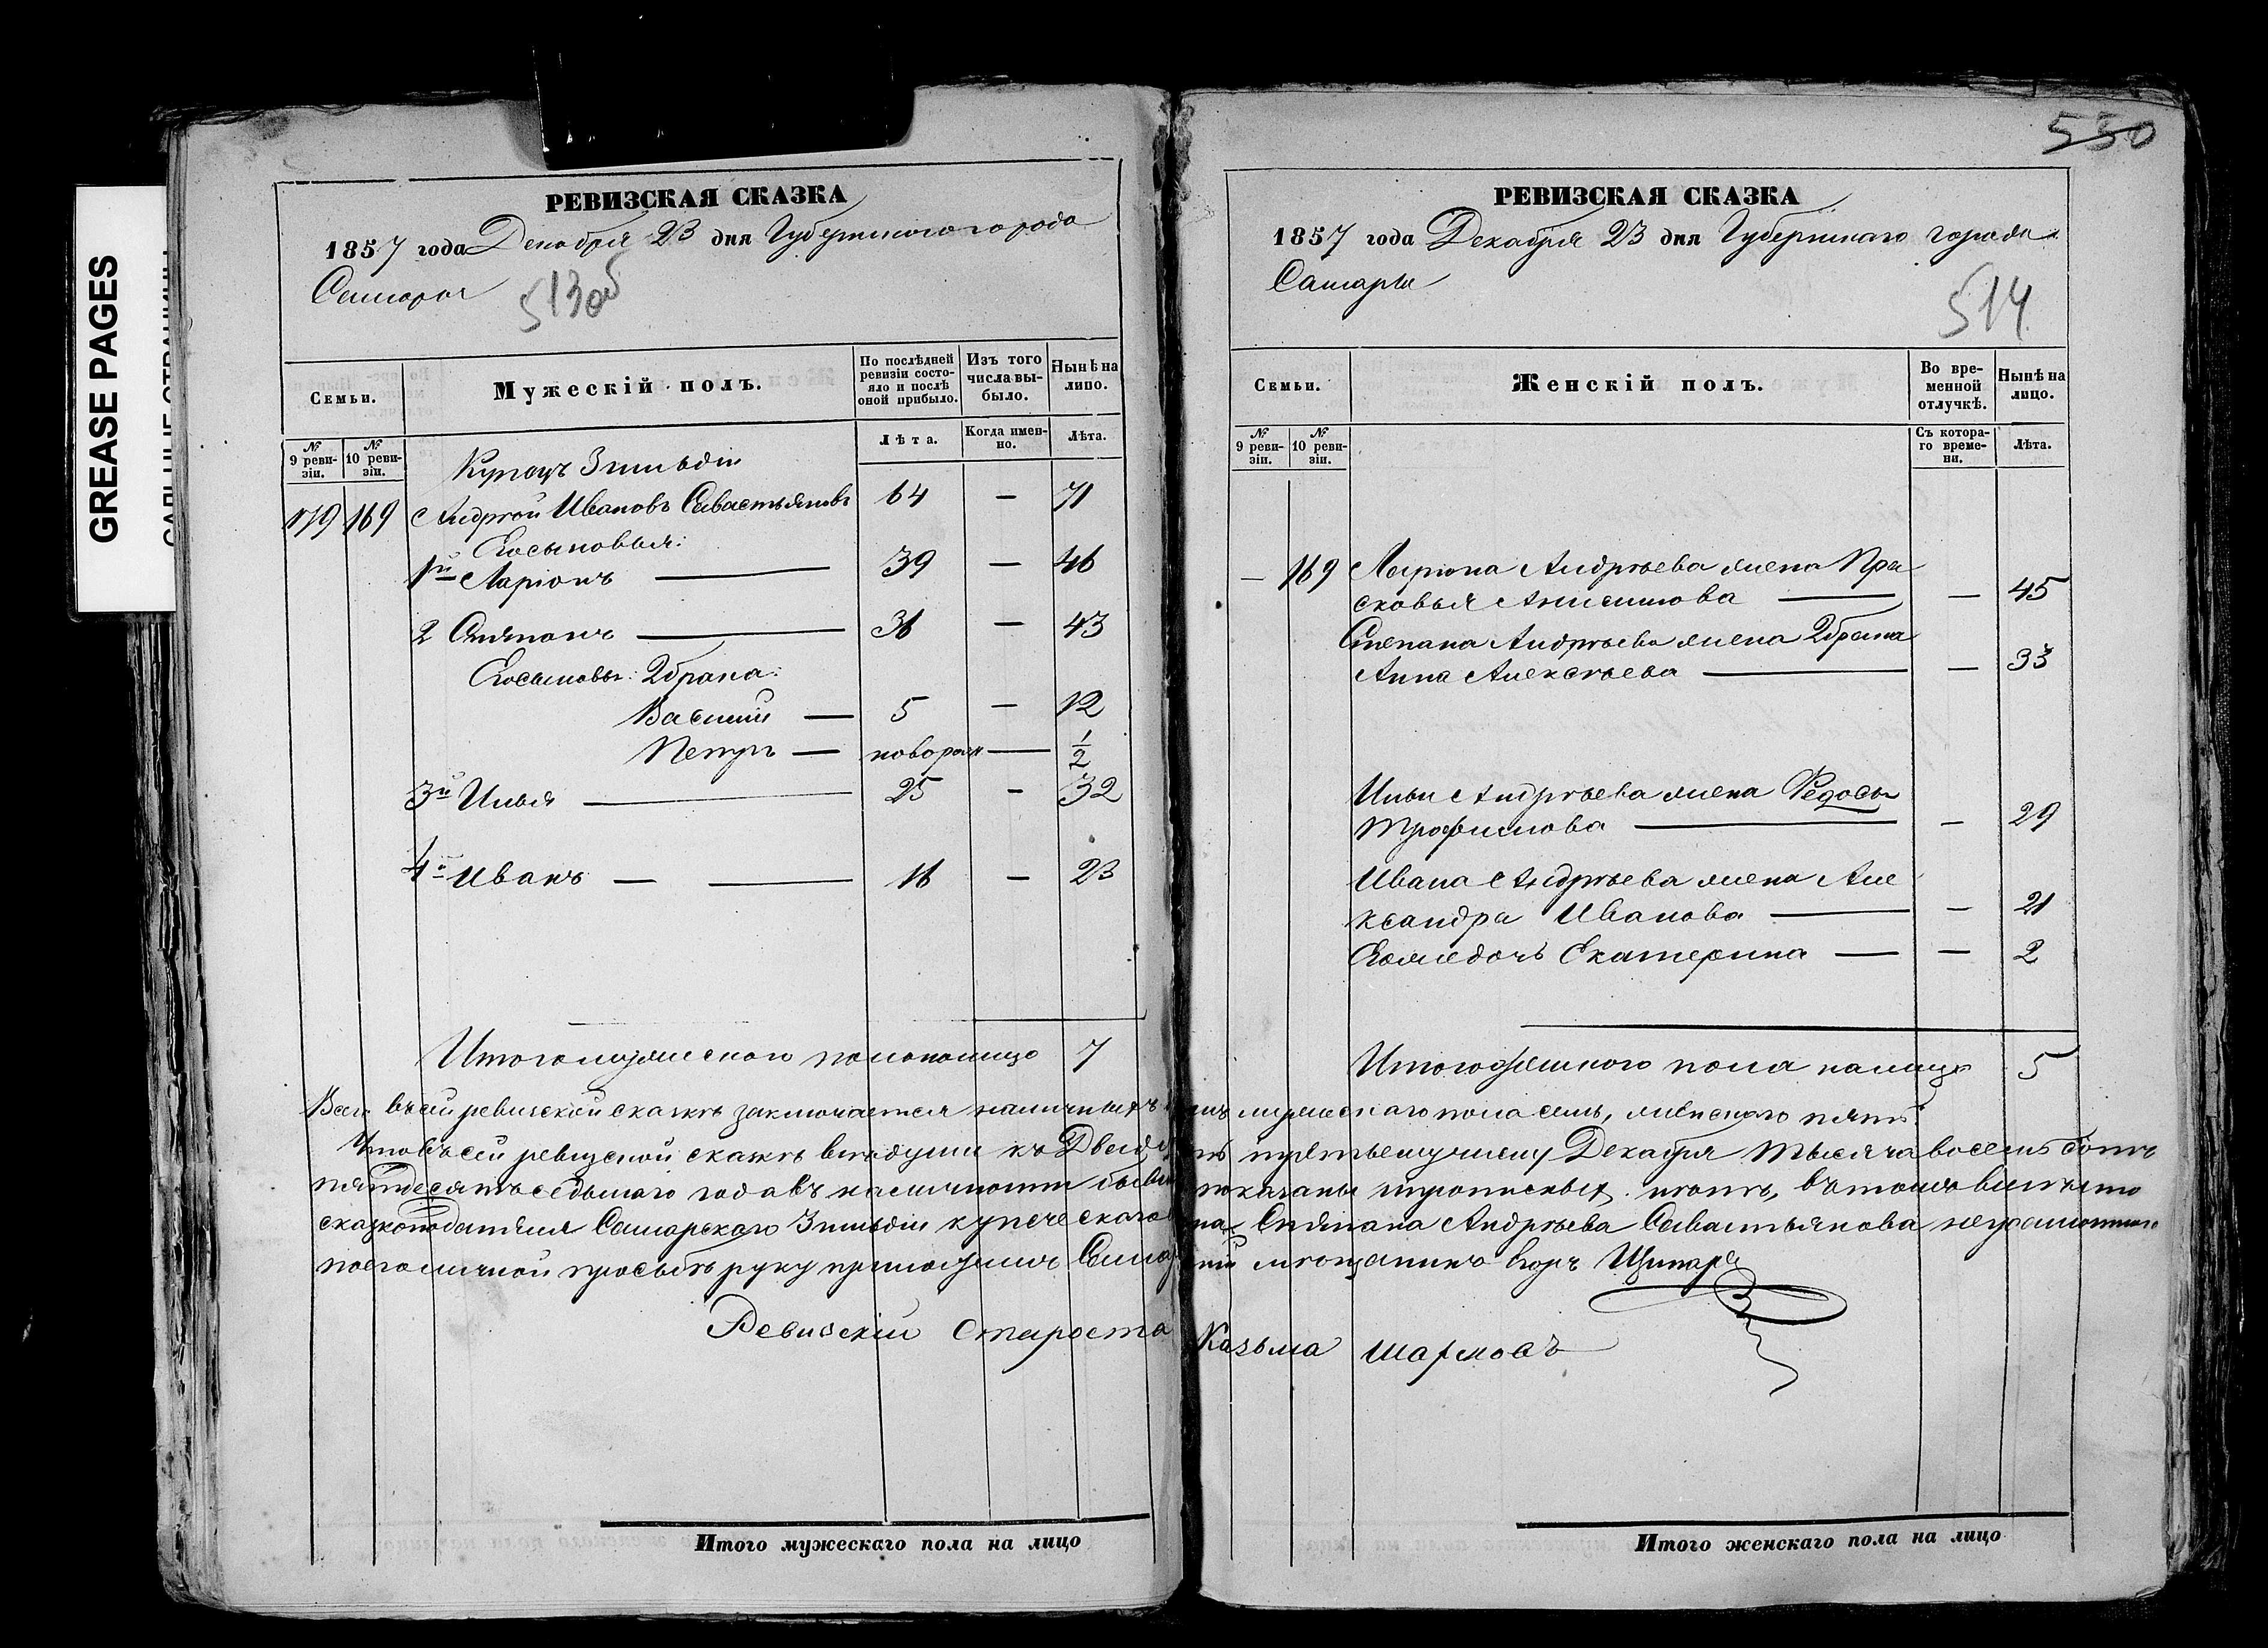 GREASE PAGES
РЕВИЗСКАЯ СКАЗКА
1857 года Декабря 23 дня Губернского города
Самары
513об
Семьи.
Мужескій полъ.
По послѣдней ревизіи состояло и послѣ оной прибыло.
Изъ того числа выбыло.
Нынѣ на лицо.
№ 9 ревизіи.
№ 10 ревизіи.
Лѣта.
Когда именно.
Лѣта.
Купецъ 3 гильдіи
179 169 Андрей Ивановъ Савастьяновъ 64 — 71
Его сыновья:
1й Ларіонъ — 39 — 46
2 Степанъ — 36 — 43
Его сыновья: 2 брака:
Василій — 5 — 12
Петръ — новорож — 1/2
3й Илья — 25 — 32
4й Иванъ — 16 — 23
Итого мужескаго пола на лицо 7
Итого мужескаго пола на лицо
530
РЕВИЗСКАЯ СКАЗКА
1857 года Декабря 23 дня Губернскаго города
Самары
514
Семьи.
Женскій полъ.
Во временной отлучкѣ.
Нынѣ на лицо.
№ 9 ревизіи.
№ 10 ревизіи.
Съ котораго времени.
Лѣта.
— 169 Ларіона Андрѣева жена Пра
сковья Анисимова — — 45
Степана Андрѣева жена 2 брака
Анна Алексѣева — — 33
Ильи Андрѣева жена Федосья
Трофимова — — 29
Ивана Андрѣева жена Але
ксандра Иванова — — 21
Его жедочь Екатерина — — 2
Итого женского пола на лицо 5
въ сей ревизской сказкѣ заключается наличныхъ мужескаго пола семь, женскаго пять.
Что въ сей ревизской сказкѣ всѣ души къ Двадца третьему числу Декабря тысяча восемь сотъ
пятдесятъ седьмаго года въ наличности показаны и прописныхъ нѣтъ, въ томъ вмѣсто
сказкоподателя Самарскаго 3 гильдіи купеческаго Степана Андрѣева Савастьянова неграмотнаго
по его личной прозьбѣ руку приложилъ мѣщанинъ
Ревизскій Староста Казьма
Итого женскаго пола на лицо